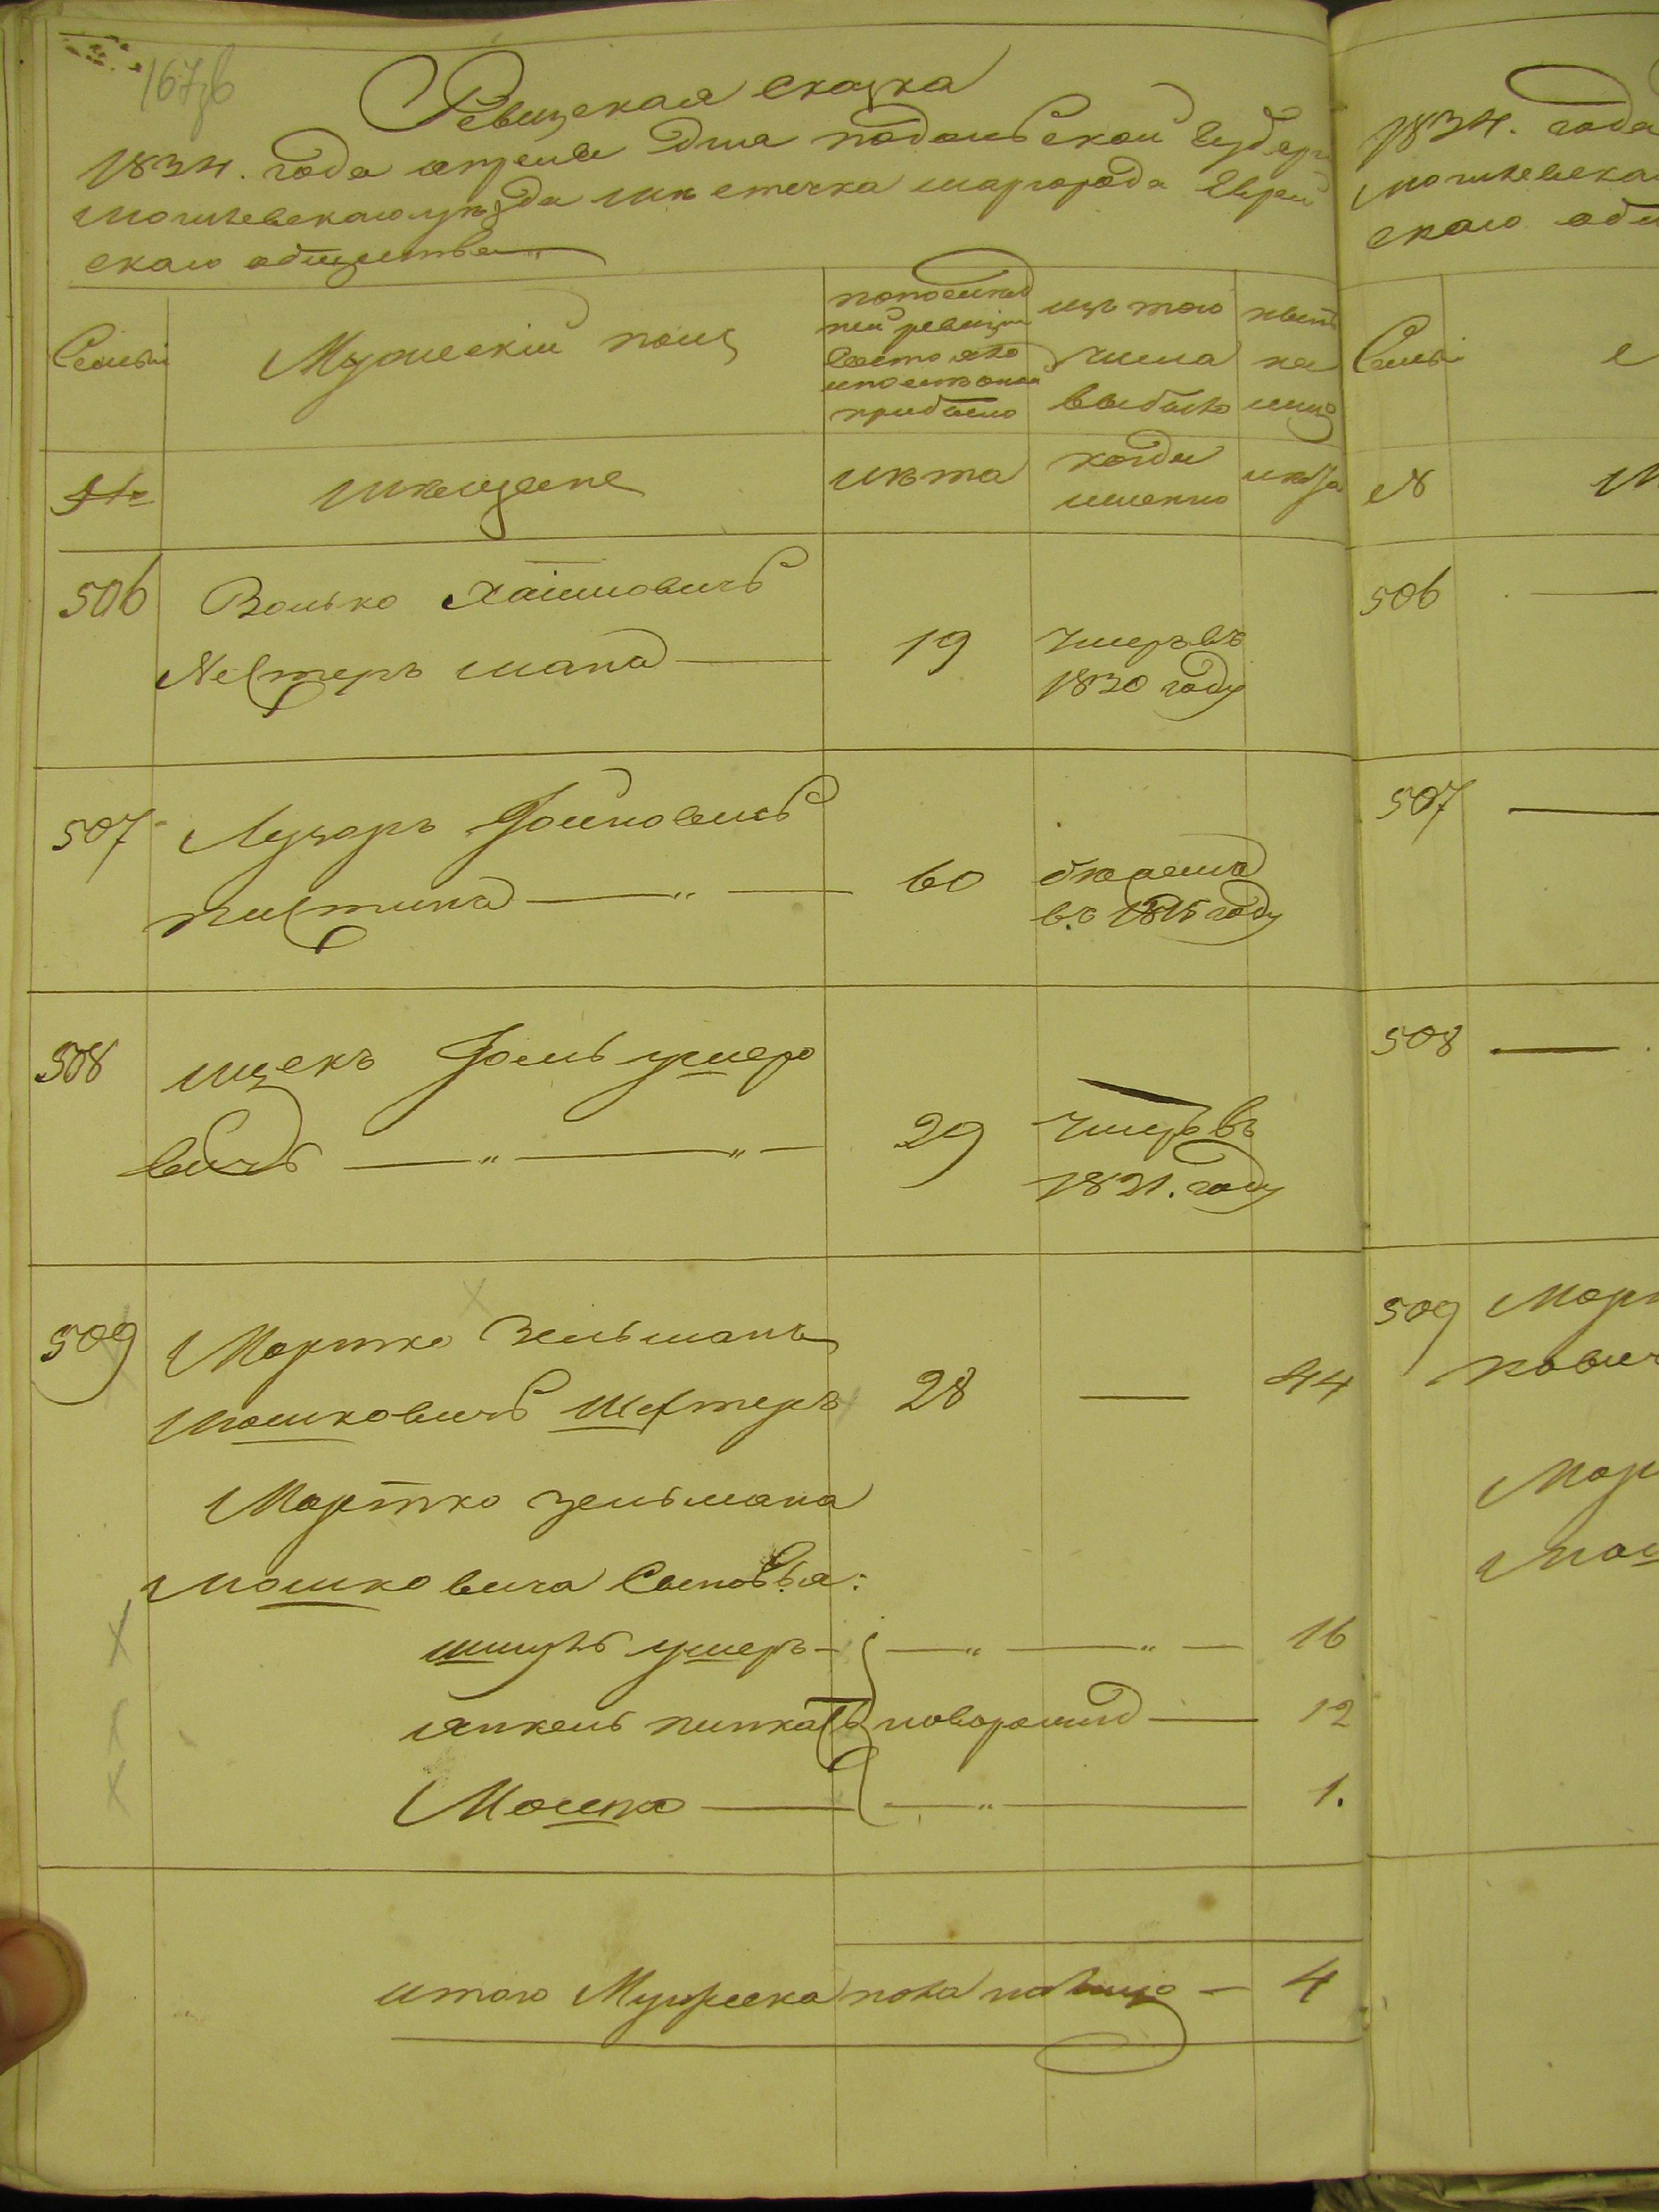 167зв
Ревизская сказка
1834. года апреля дня подольской Губерн
могилевскаго уѣзда мѣстечка шаргорода Еврей
скаго общества
Семьи
Мужескій полъ
по послѣд
ней ревизіи
состояло
и после оной
прибыло
изъ того
числа
выбыло
нынѣ
на
лицо
№
мѣщане
лѣта
когда
именно
лѣта
506
Волько Хаимовичъ
19
умеръ въ
1830 году
507
Лузоръ
60
въ 1815 году
508
ицекъ Гоиль ушеро
вичъ
29
умеръ въ
1821. году
509
Мортко Зельманъ
мошковичъ Шехтеръ
28
44
Мортко зельмана
мошковича Сыновья:
ушеръ
16
янкель пинкасъ
новорожд
12
Мошко
1.
итого Мужеска пола на лицо
4
1834. года
могилевска
скаго общ
Семьи
№
506
507
508
509
Морт
кович
Мор
мош